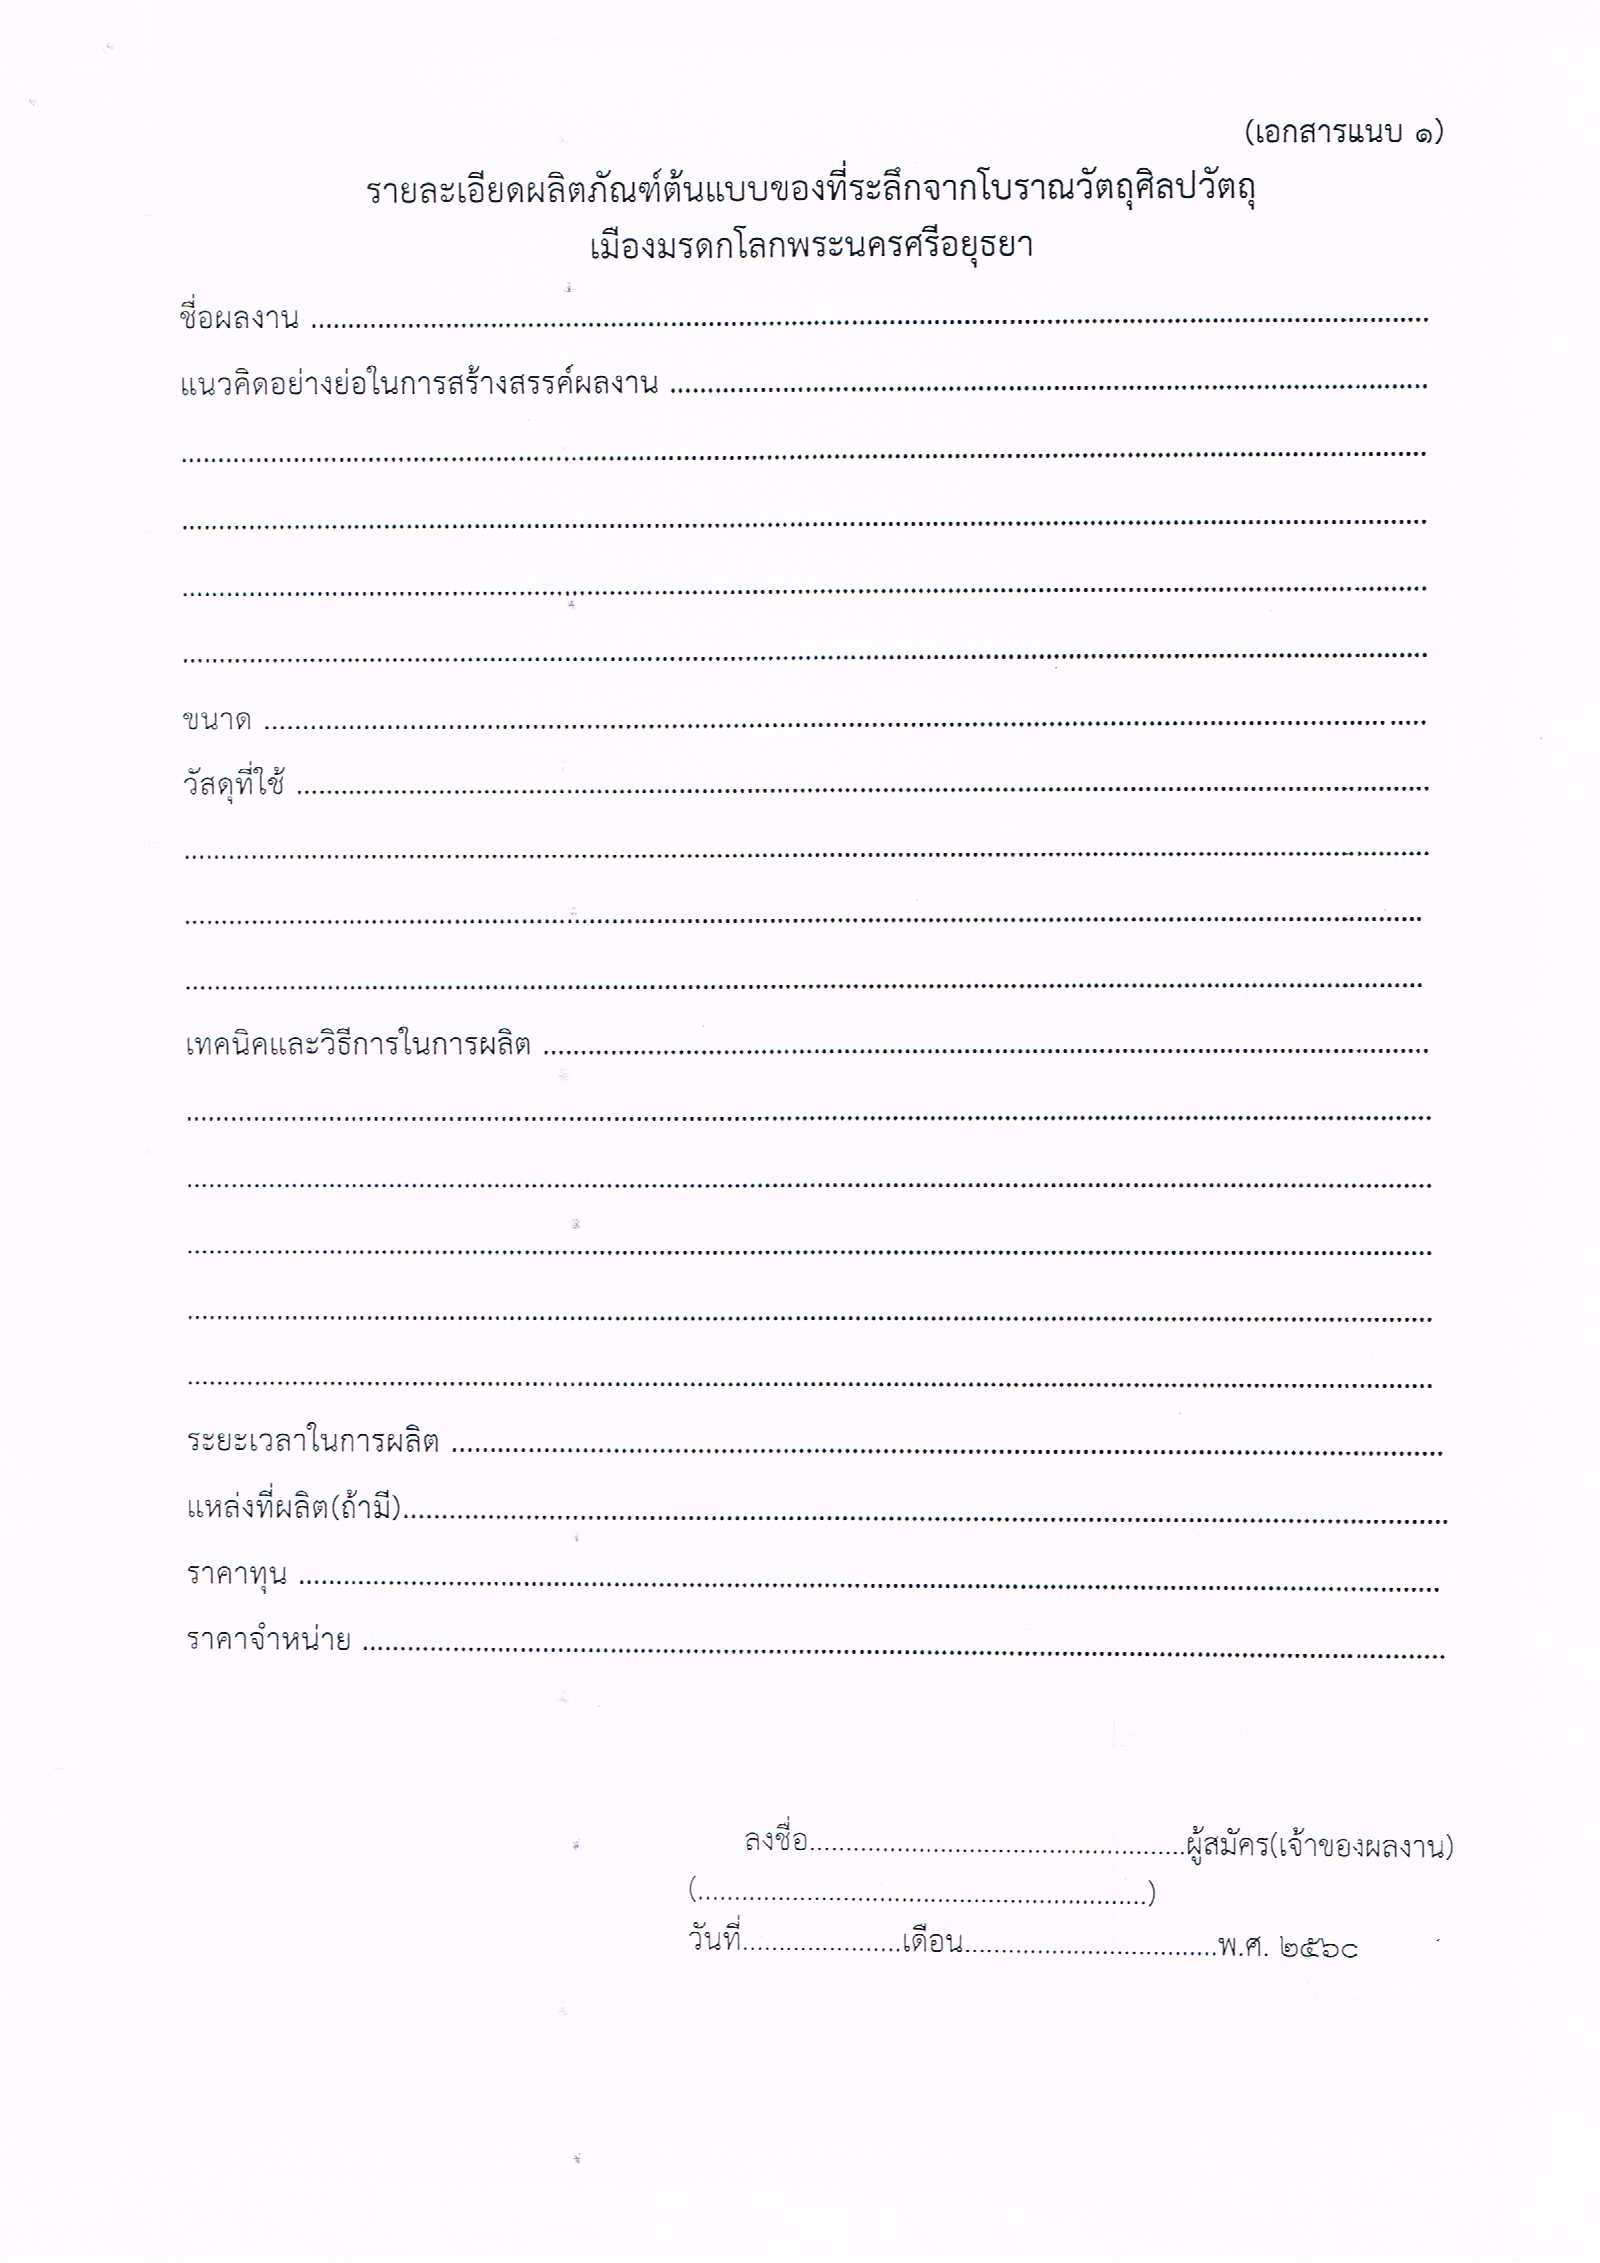 (เอกสารแนบ ๑)
รายละเอียดผลิตภัณฑ์ต้นแบบของที่ระลึกจากโบราณวัตถุศิลปวัตถุ
เมืองมรดกโลกพระนครศรีอยุธยา
ชื่อผลงาน ................................................................
แนวคิดอย่างย่อในการสร้างสรรค์ผลงาน ................................................................
................................................................
................................................................
................................................................
................................................................
ขนาด ................................................................
วัสดุที่ใช้ ................................................................
................................................................
................................................................
................................................................
เทคนิคและวิธีการในการผลิต ................................................................
................................................................
................................................................
................................................................
................................................................
................................................................
ระยะเวลาในการผลิต ................................................................
แหล่งที่ผลิต(ถ้ามี)................................................................
ราคาทุน ................................................................
ราคาจำหน่าย ................................................................
ลงชื่อ....................................................ผู้สมัคร(เจ้าของผลงาน)
(..............................................................)
วันที่......................เดือน...................................พ.ศ. ๒๕๖๐